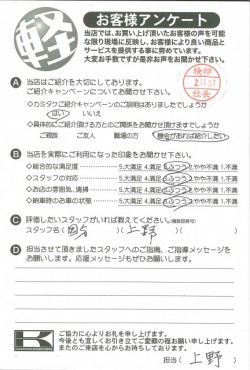 軽
お客様アンケート
当店では、お買い上げ頂いたお客様の声を可能な
限り現場に反映し、お客様により良い商品と
サービスを提供する事に努めています。
大変お手数ですが是非お声をお聞かせ下さい。
検印
社長
A 当店はご紹介を大切にしております。
ご紹介キャンペーンについてお聞かせ下さい。
◇カミタケご紹介キャンペーンのご説明はありましたでしょうか
はい いいえ
◇具体的にご紹介頂ける方とのご関係をお聞かせ頂けますでしょうか
ご親族 ご友人 職場の方 機会があれば紹介したい
B 当店を実際にご利用になった印象をお聞かせ下さい。
◇総合的な満足度 5.大満足 4.満足 3.ふつう 2.やや不満 1.不満
◇スタッフの対応 5.大満足 4.満足 3.ふつう 2.やや不満 1.不満
◇お店の雰囲気、清掃 5.大満足 4.満足 3.ふつう 2.やや不満 1.不満
◇納車時のお車の状態 5.大満足 4.満足 3.ふつう 2.やや不満 1.不満
C 評価したいスタッフがいれば教えてください。(複数回答可)
スタッフ名( )(上野 )( )
D 担当させて頂きましたスタッフへのご指摘、ご指導メッセージを
お願いします。応援メッセージもぜひお願いします。
K
ご協力に心よりお礼を申し上げます。
今後とも宜しくお引き立てご愛顧の程お願い申し上げます。
またのご来店を心からお待ちしております。
担当(上野)